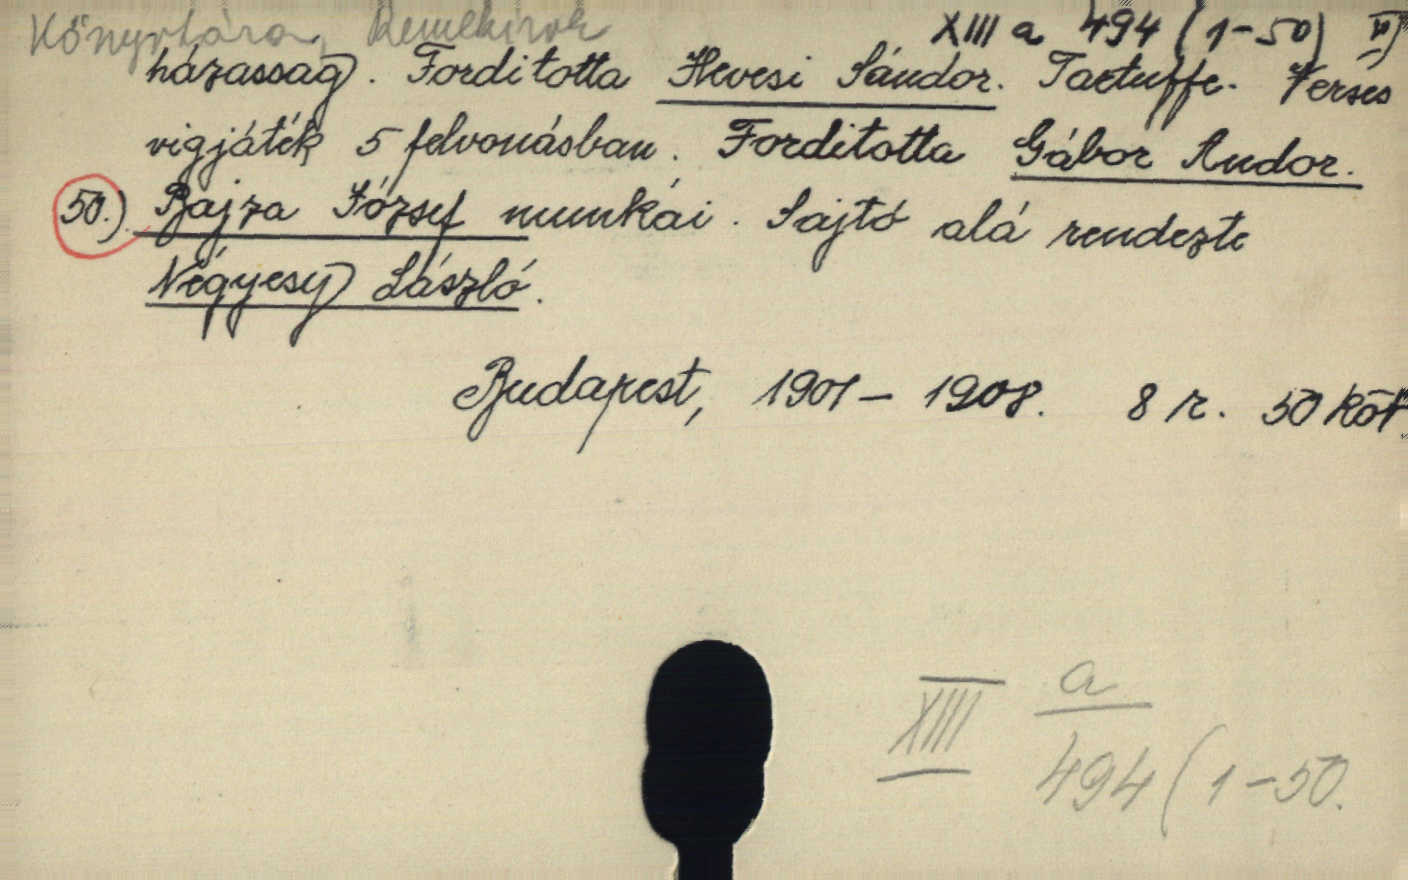 Könyvtára, Remekirók
XIII a 494 (1-50) VI)
házassag. Forditotta Hevesi Sándor. Tartuffe. Verses
vigjáték 5 felvonásban. Forditotta Gábor Andor.
50.) Bajza József munkái. Sajtó alá rendezte
Négyesy László.
Budapest, 1901-1908. 8 r. 50 köt.
XIII a
494 (1-50.